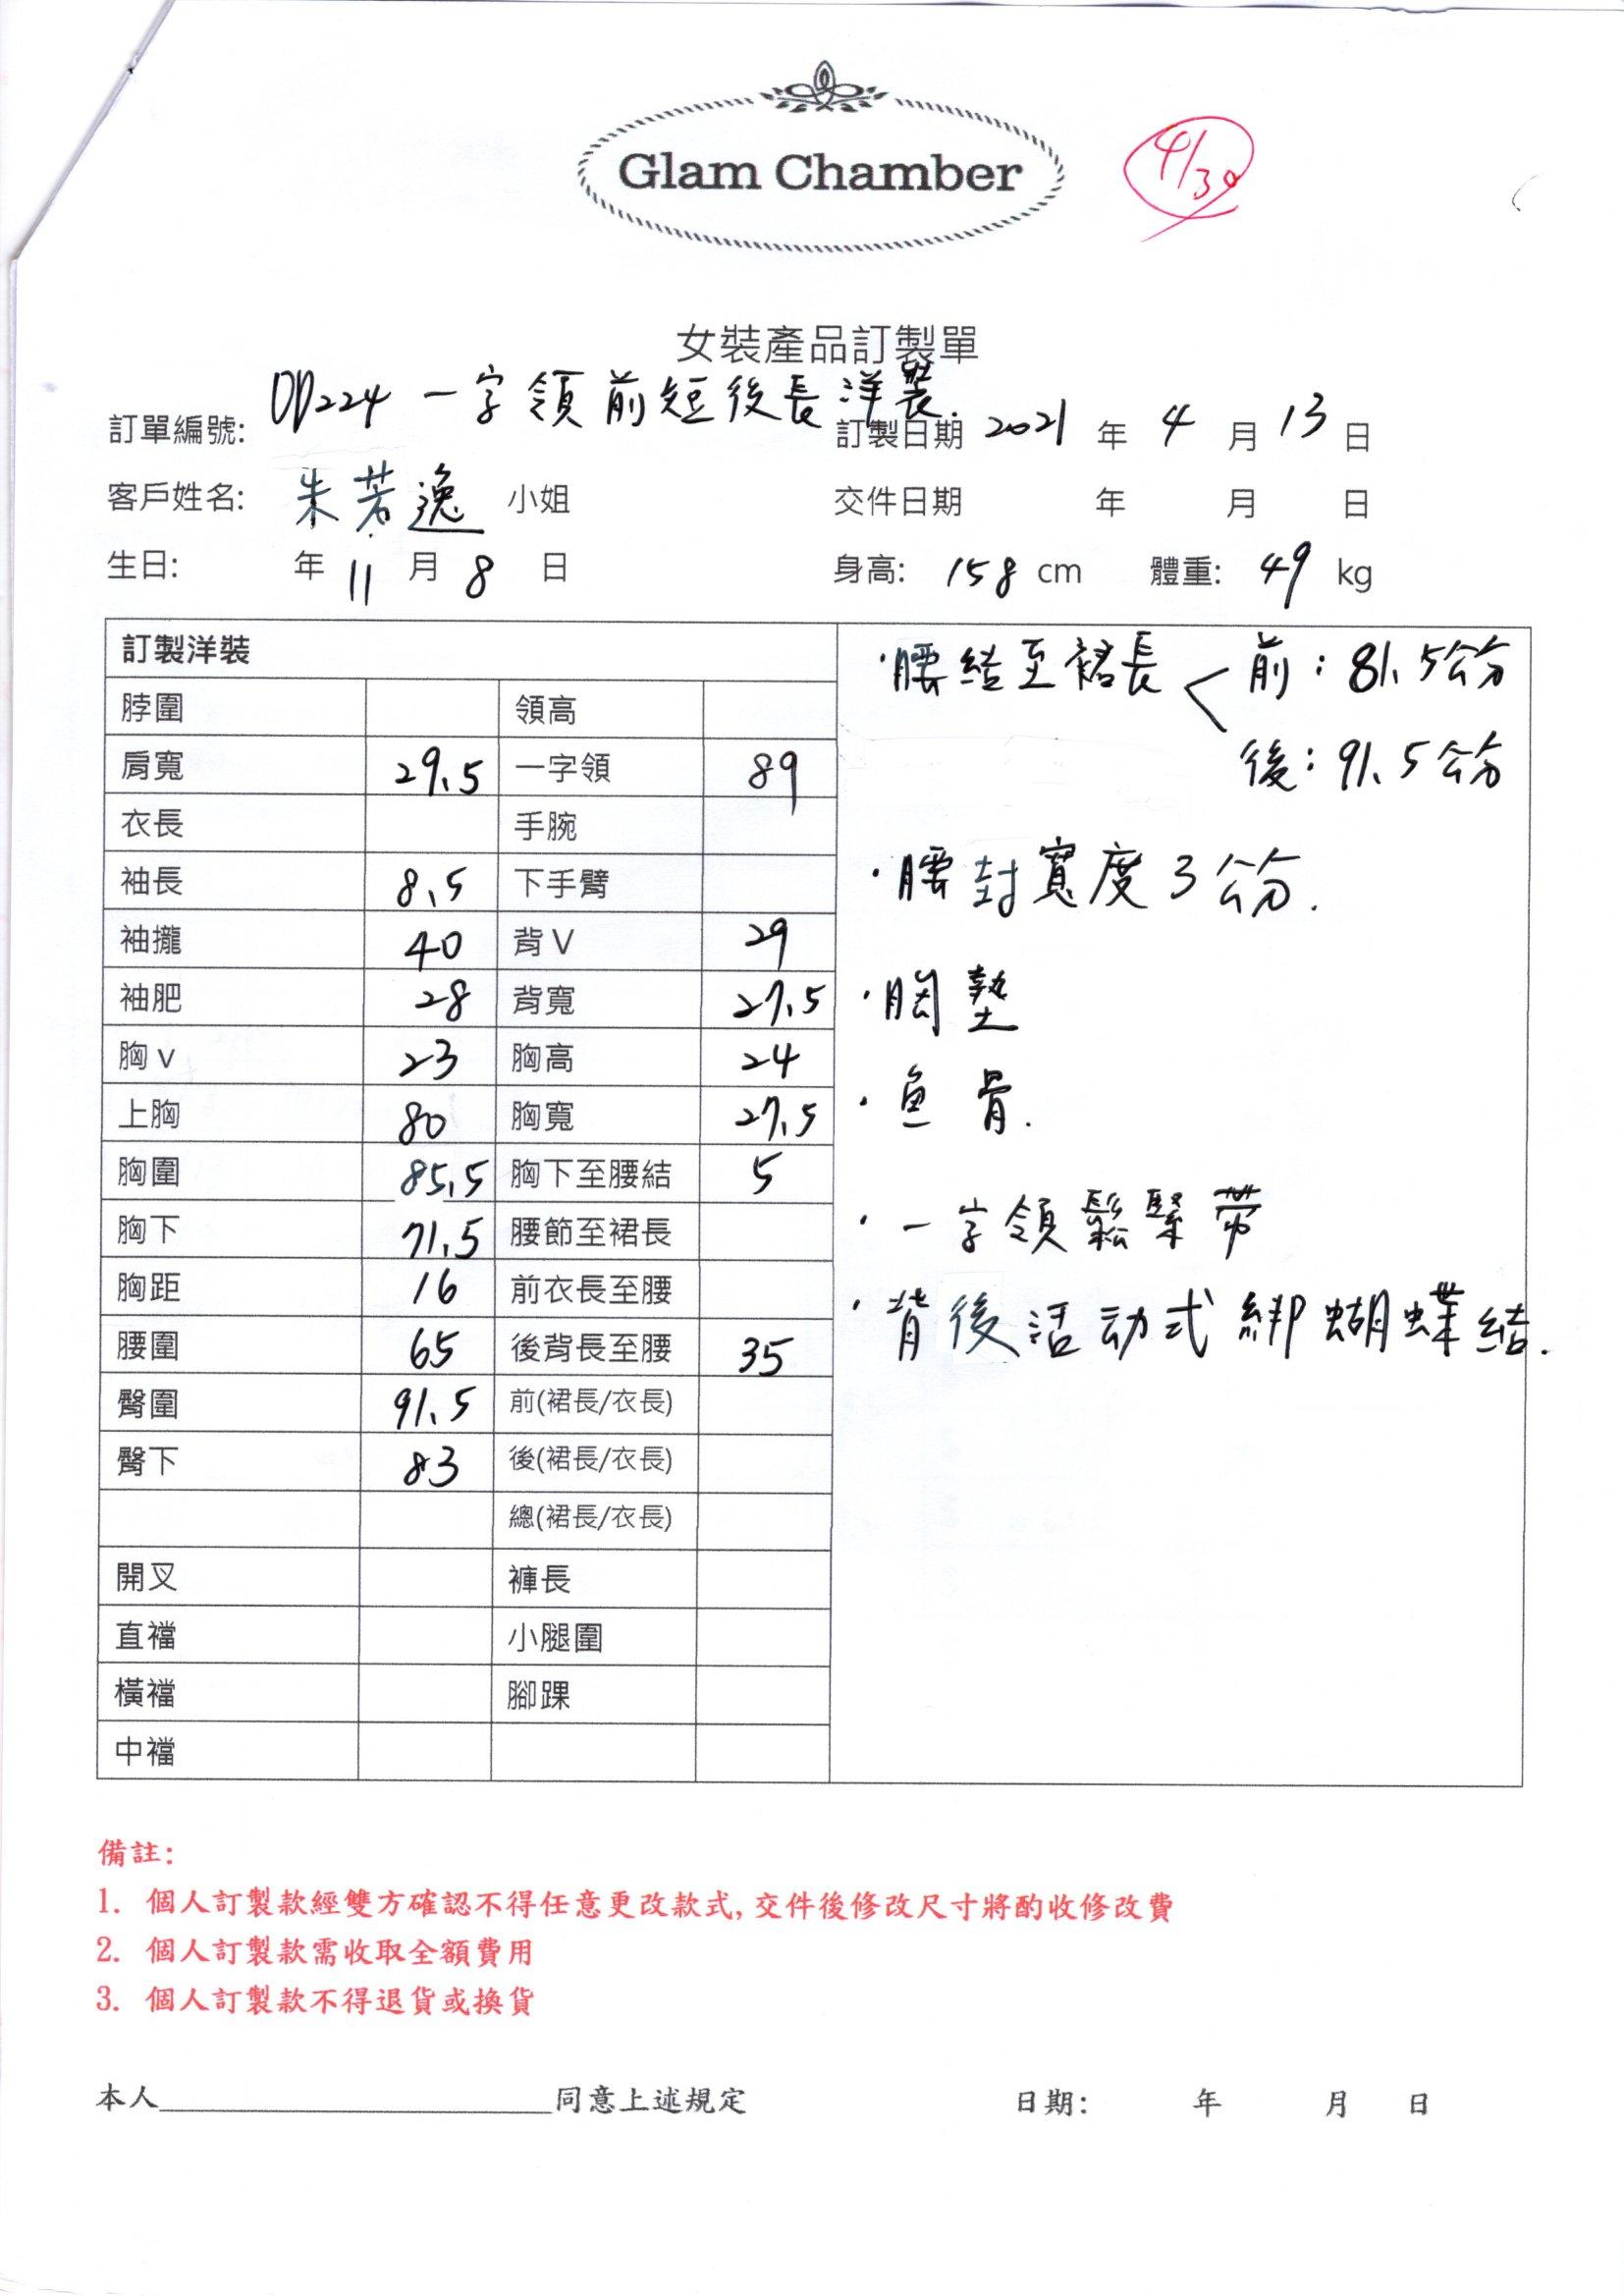 Glam Chamber
4/30
女裝產品訂製單
訂單編號: DD224 一字領前短後長洋裝. 訂製日期 2021 年 4 月 13 日
客戶姓名: 朱若逸 小姐 交件日期 年 月 日
生日: 年 11 月 8 日 身高: 158 cm 體重: 49 kg
訂製洋裝
脖圍 領高
肩寬 29.5 一字領 89
衣長 手腕
袖長 8.5 下手臂
袖攏 40 背 V 29
袖肥 28 背寬 27.5
胸 v 23 胸高 24
上胸 80 胸寬 27.5
胸圍 85.5 胸下至腰結 5
胸下 71.5 腰節至裙長
胸距 16 前衣長至腰
腰圍 65 後背長至腰 35
臀圍 91.5 前(裙長/衣長)
臀下 83 後(裙長/衣長)
總(裙長/衣長)
開叉 褲長
直襠 小腿圍
橫襠 腳踝
中襠
·腰結至裙長 < 前: 81.5公分
後: 91.5公分
·腰封寬度3公分.
·胸墊
·魚骨.
·一字領鬆緊帶
·背後活动式綁蝴蝶結.
備註:
1. 個人訂製款經雙方確認不得任意更改款式, 交件後修改尺寸將酌收修改費
2. 個人訂製款需收取全額費用
3. 個人訂製款不得退貨或換貨
本人____________________同意上述規定 日期: 年 月 日